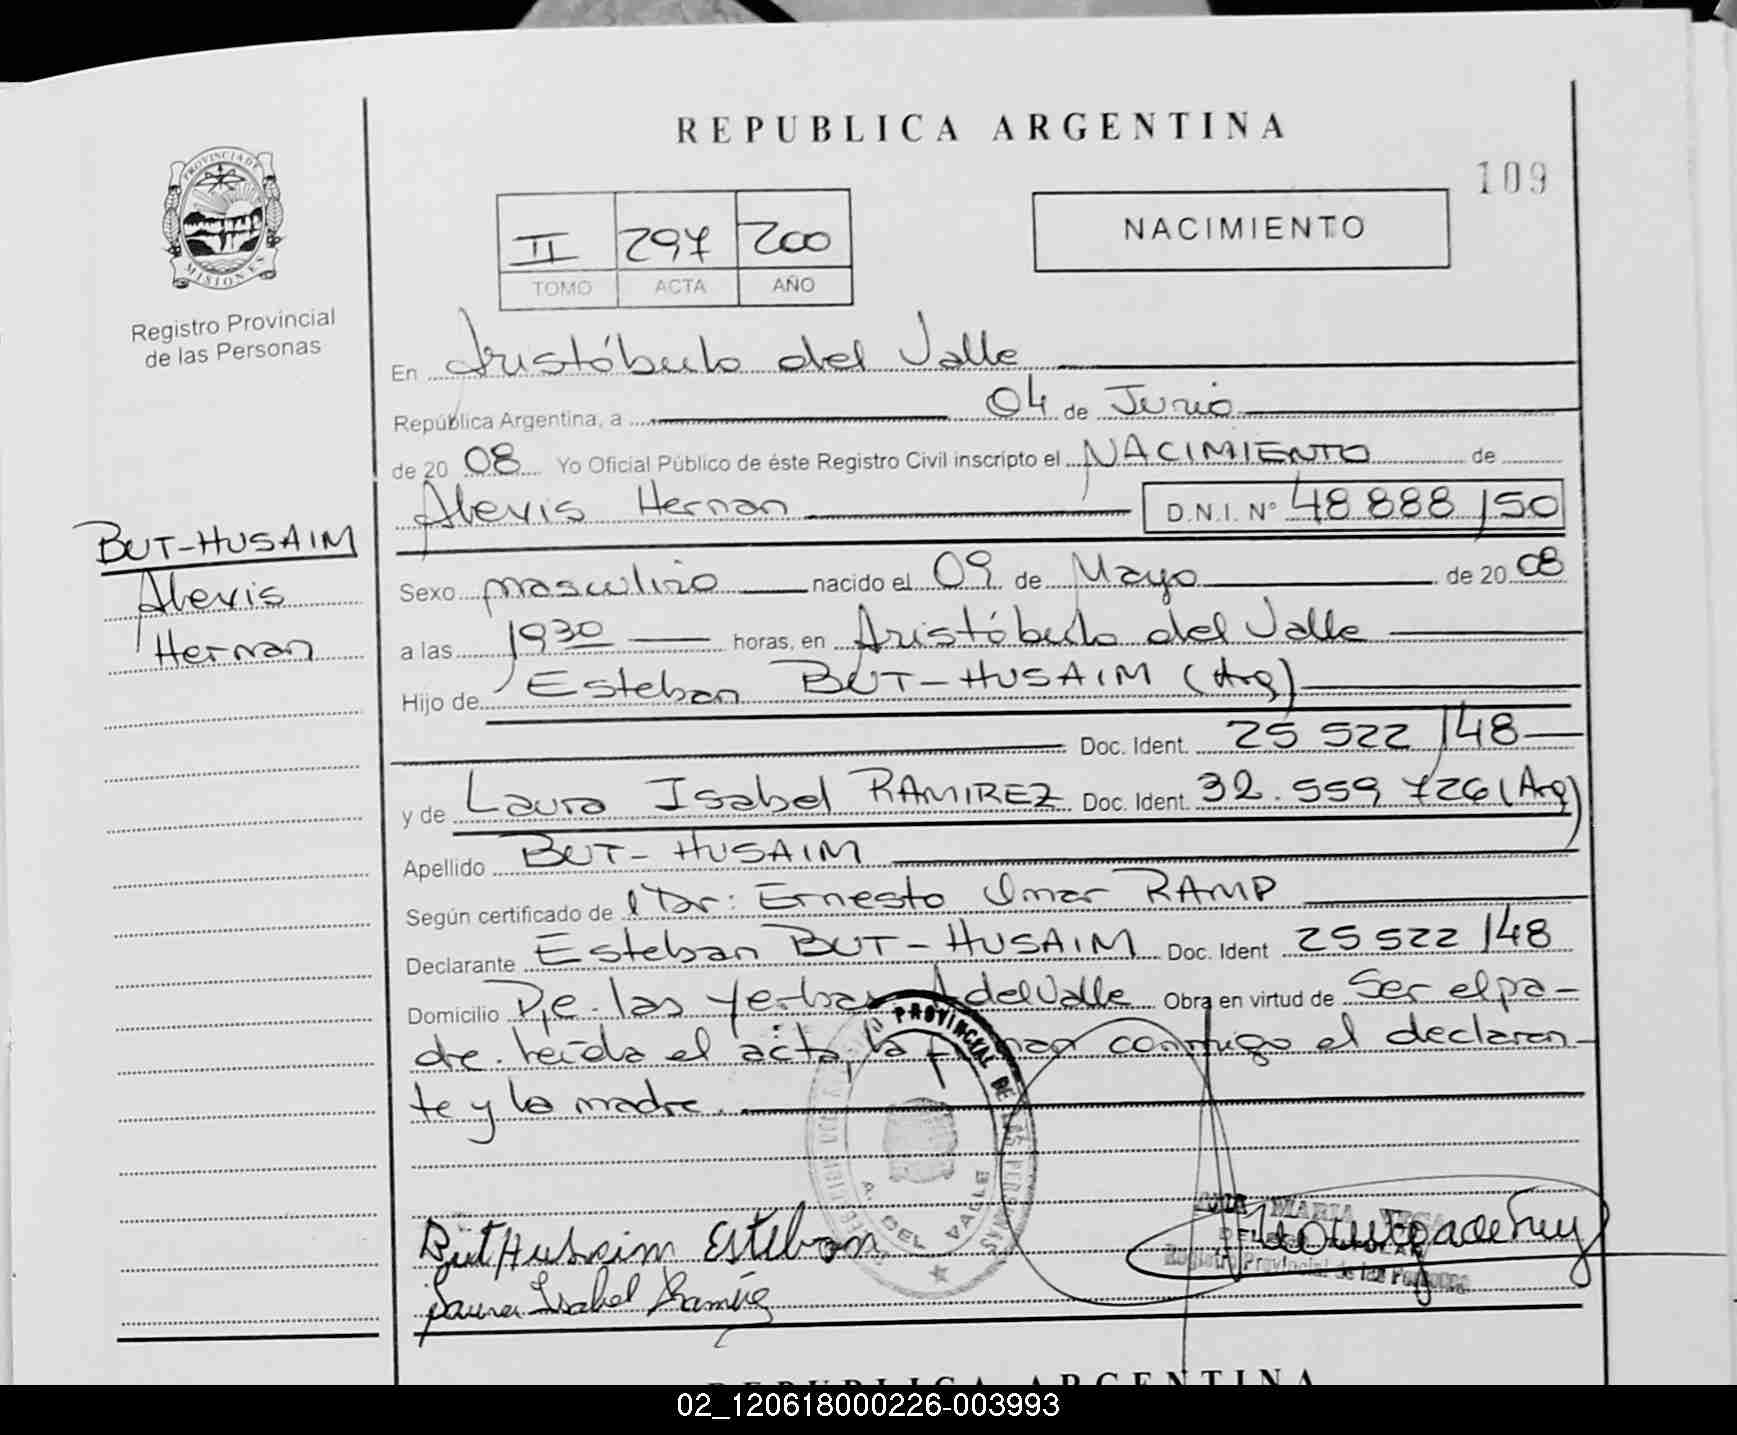 REPUBLICA ARGENTINA
109
PROVINCIA DE
MISIONES
Registro Provincial
de las Personas
II 297 200
TOMO ACTA AÑO
NACIMIENTO
En Aristóbulo del Valle
República Argentina, a 04 de Junio
de 20 08 Yo Oficial Público de éste Registro Civil inscripto el NACIMIENTO de
Alexis Hernan D.N.I. Nº 48 888 150
BUT-HUSAIM
Alexis
Hernan
Sexo masculino nacido el 09 de Mayo de 20 08
a las 1930 horas, en Aristóbulo del Valle
Hijo de Esteban BUT-HUSAIM (Arg)
Doc. Ident. 25 522 148
y de Laura Isabel RAMIREZ Doc. Ident. 32.559 726 (Arg)
Apellido BUT-HUSAIM
Según certificado de Dr: Ernesto Omar RAMP
Declarante Esteban BUT-HUSAIM Doc. Ident 25 522 148
Domicilio Pje. las Yerbas A del Valle Obra en virtud de Ser el pa-
dre. leída el acta, la firman conmigo el declaran-
te y la madre.
PROVINCIAL DE LAS PERSONAS
A. DEL VALLE
But Husaim Esteban
Laura Isabel Ramirez
MARIA
Registro Provincial de las Personas
REPUBLICA ARGENTINA
02_120618000226-003993